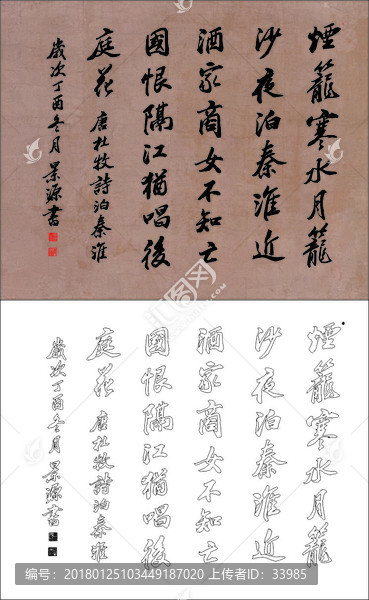 煙籠寒水月籠
沙夜泊秦淮近
酒家商女不知亡
國恨隔江猶唱後
庭花 唐杜牧詩泊秦淮
歲次丁酉冬月 景源書
煙籠寒水月籠
沙夜泊秦淮近
酒家商女不知亡
國恨隔江猶唱後
庭花 唐杜牧詩泊秦淮
歲次丁酉冬月 景源書
编号：20180125103449187020 上传者ID：33985